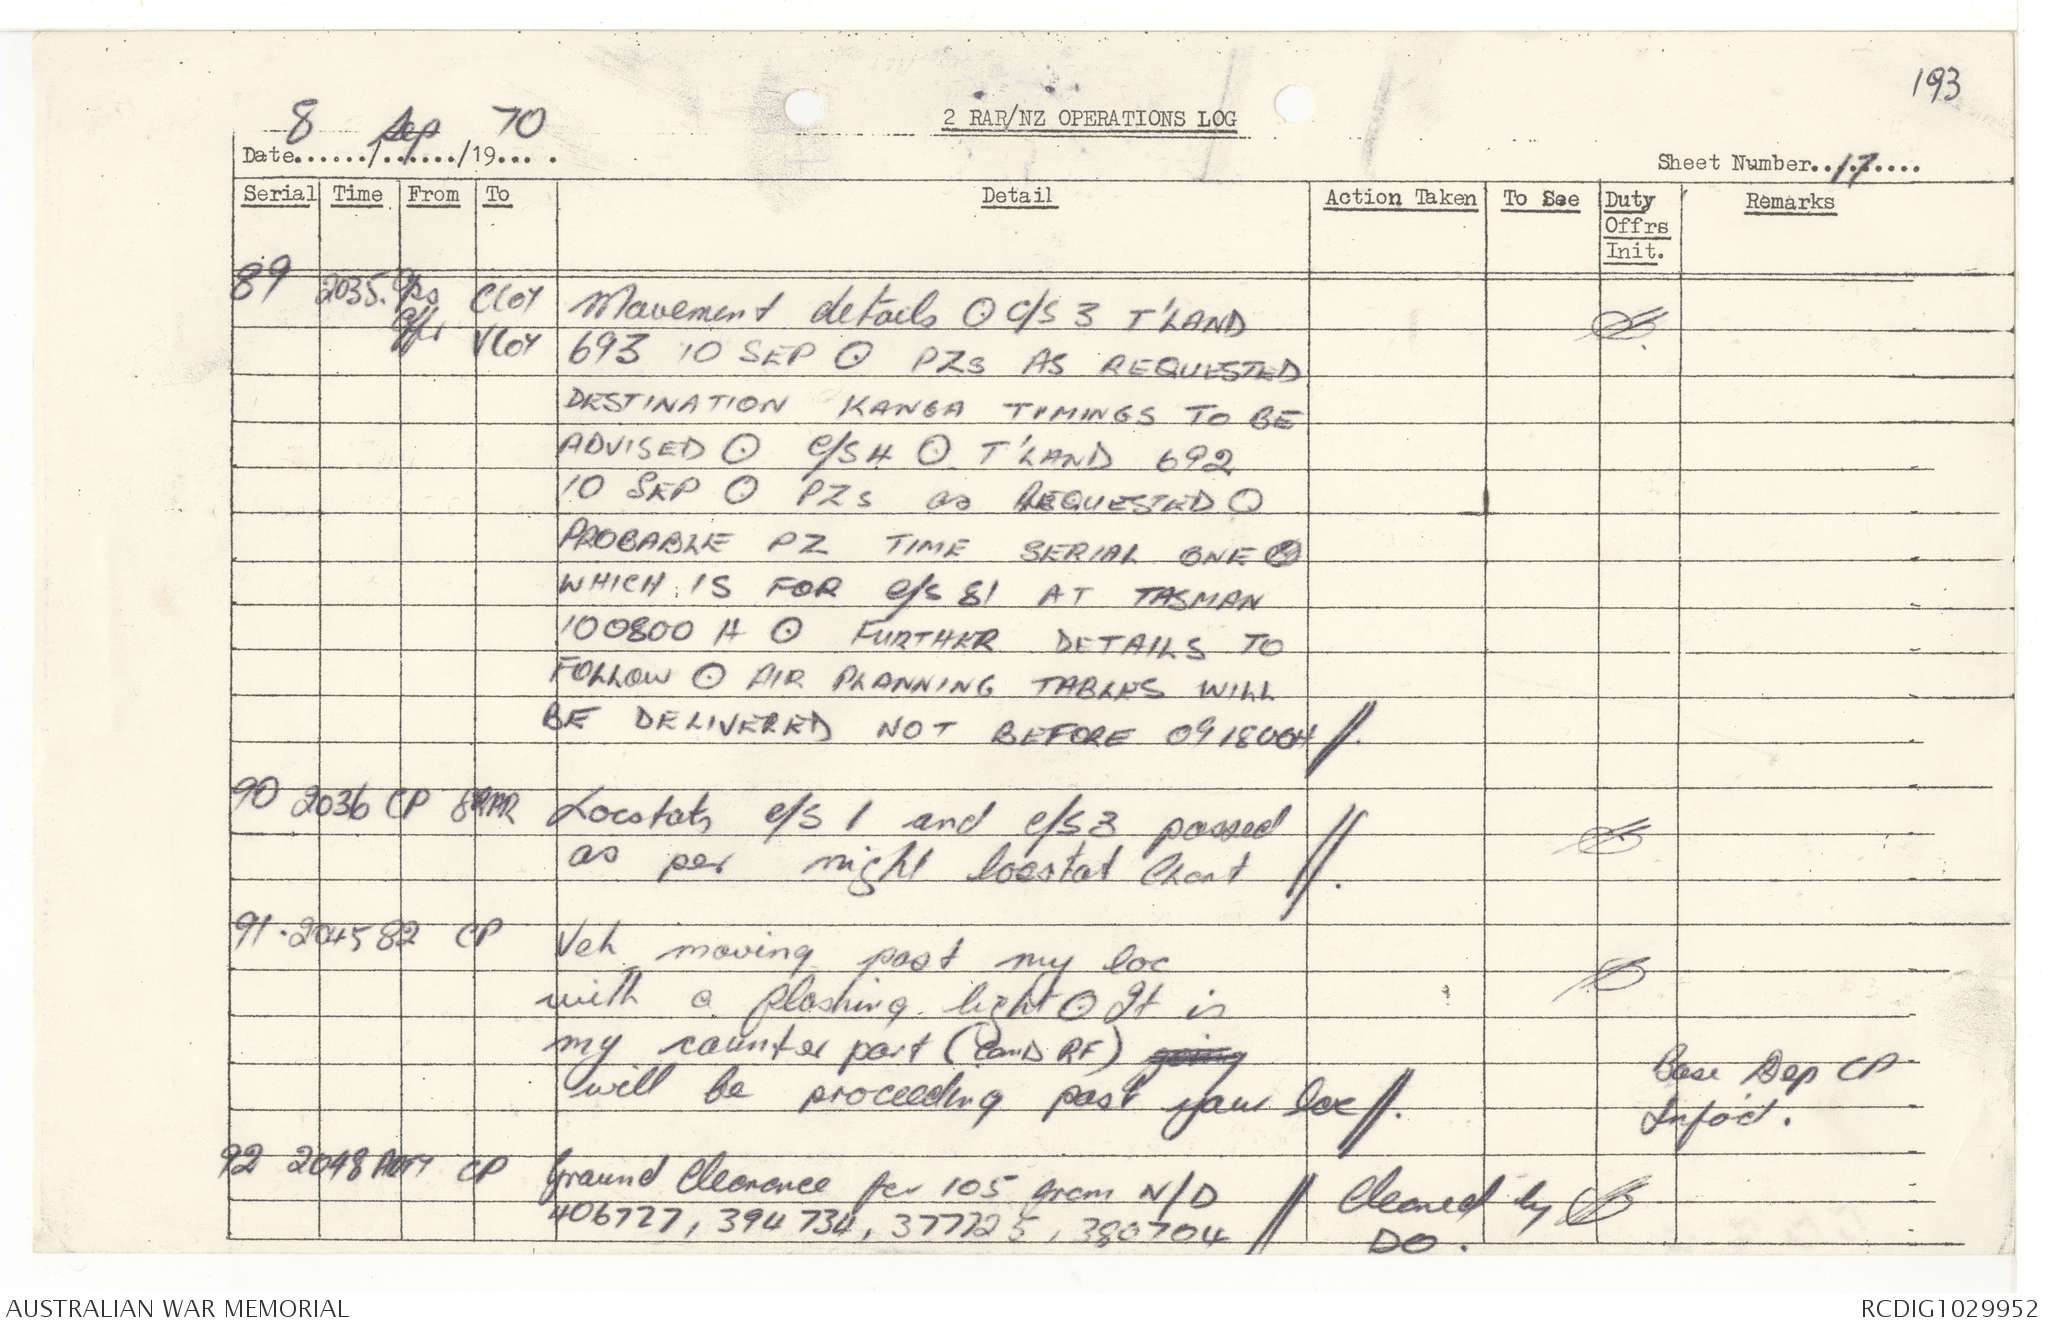 193
8 Sep 70
2 RAR/NZ OPERATIONS LOG
Date....../....../19... .
Sheet Number..17.....
Serial Time From To Detail Action Taken To See Duty Offrs Init. Remarks
89 2035. Ops Offr CLOY VLOY Movement details ⊙ C/S 3 T'LAND
693 10 SEP ⊙ PZs AS REQUESTED
DESTINATION KANGA TIMINGS TO BE
ADVISED ⊙ C/S 4 ⊙ T'LAND 692
10 SEP ⊙ PZs as REQUESTED ⊙
PROBABLE PZ TIME SERIAL ONE ⊙
WHICH IS FOR C/S 81 AT TASMAN
100800 H ⊙ FURTHER DETAILS TO
FOLLOW ⊙ AIR PLANNING TABLES WILL
BE DELIVERED NOT BEFORE 091800H //.
90 2036 CP 8RAR Locstats C/S 1 and C/S 3 passed
as per night locstat Chart //.
91. 2045 82 CP Veh moving past my loc
with a flashing light ⊙ It is
my counter part (ComD RF) going
will be proceeding past your loc //. Base Dep CP
Info'd.
92 2048 Arty CP Ground Clearance for 105 from N/D // Cleared by
406727, 394734, 377725, 380704 DO.
AUSTRALIAN WAR MEMORIAL
RCDIG1029952